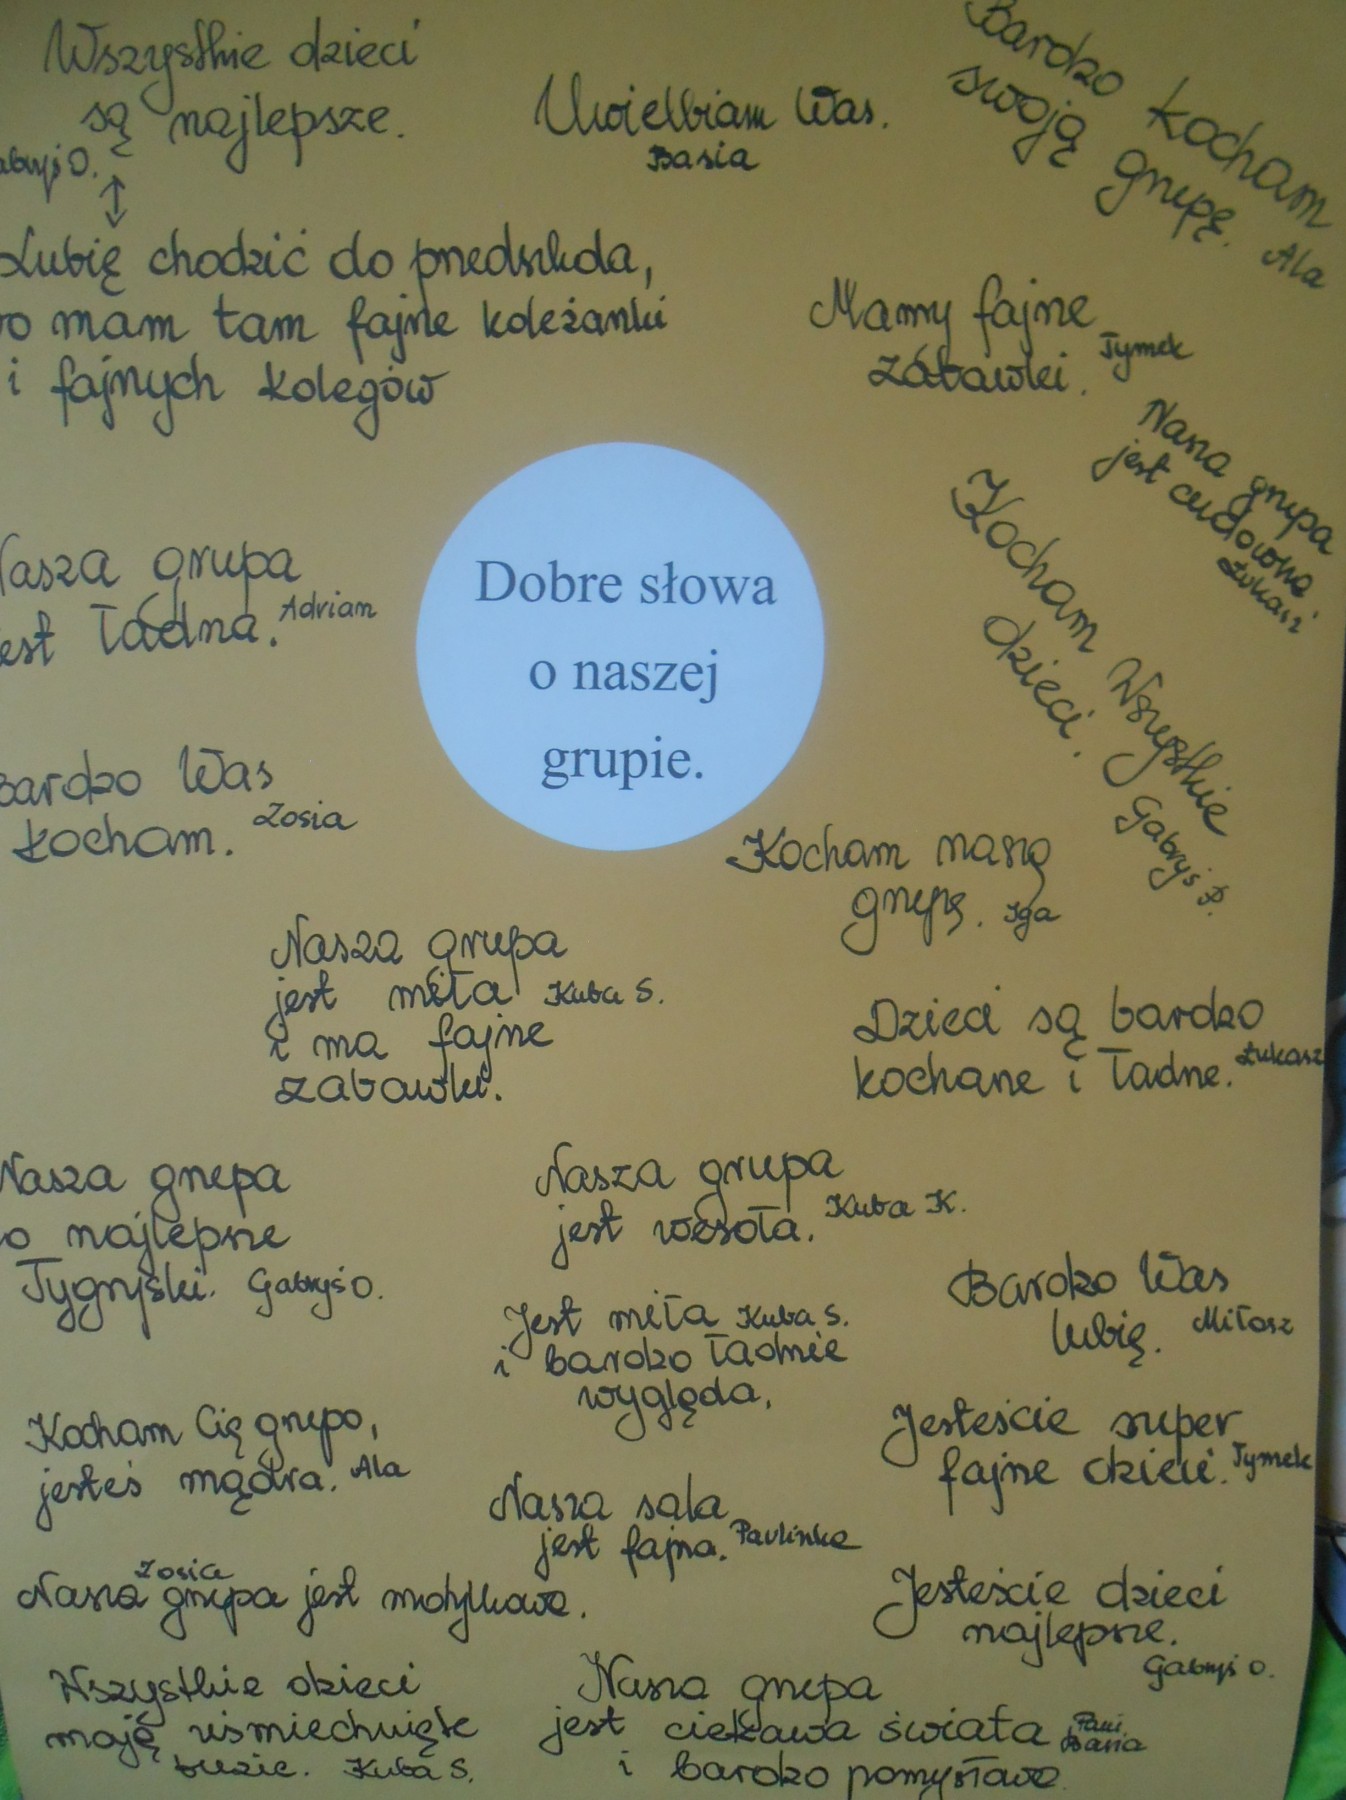 Wszystkie dzieci
są najlepsze.
abryś O.
Lubię chodzić do przedszkola,
bo mam tam fajne koleżanki
i fajnych kolegów
Uwielbiam Was.
Basia
Bardzo kocham
swoją grupę.
Ala
Mamy fajne
zabawki.
Tymek
Nasza grupa
jest cudowna
Łukasz
Kocham Wszystkie
dzieci.
Gabryś P.
Dobre słowa
o naszej
grupie.
Nasza grupa
jest ładna. Adrian
Bardzo Was
kocham. Zosia
Kocham naszą
grupę. Iga
Nasza grupa
jest miła Kuba S.
i ma fajne
zabawki.
Dzieci są bardzo
kochane i ładne. Łukasz
Nasza grupa
to najlepsze
Tygryski. Gabryś O.
Nasza grupa
jest wesoła. Kuba K.
Jest miła Kuba S.
i bardzo ładnie
wygląda.
Bardzo Was
lubię. Miłosz
Kocham Cię grupo,
jesteś mądra. Ala
Jesteście super
fajne dzieci. Tymek
Nasza sala
jest fajna. Paulinka
Zosia
Nasza grupa jest motylkowa.
Jesteście dzieci
najlepsze.
Gabryś O.
Wszystkie dzieci
mają uśmiechnięte
buzie. Kuba S.
Nasza grupa
jest ciekawa świata Pani Basia
i bardzo pomysłowa.